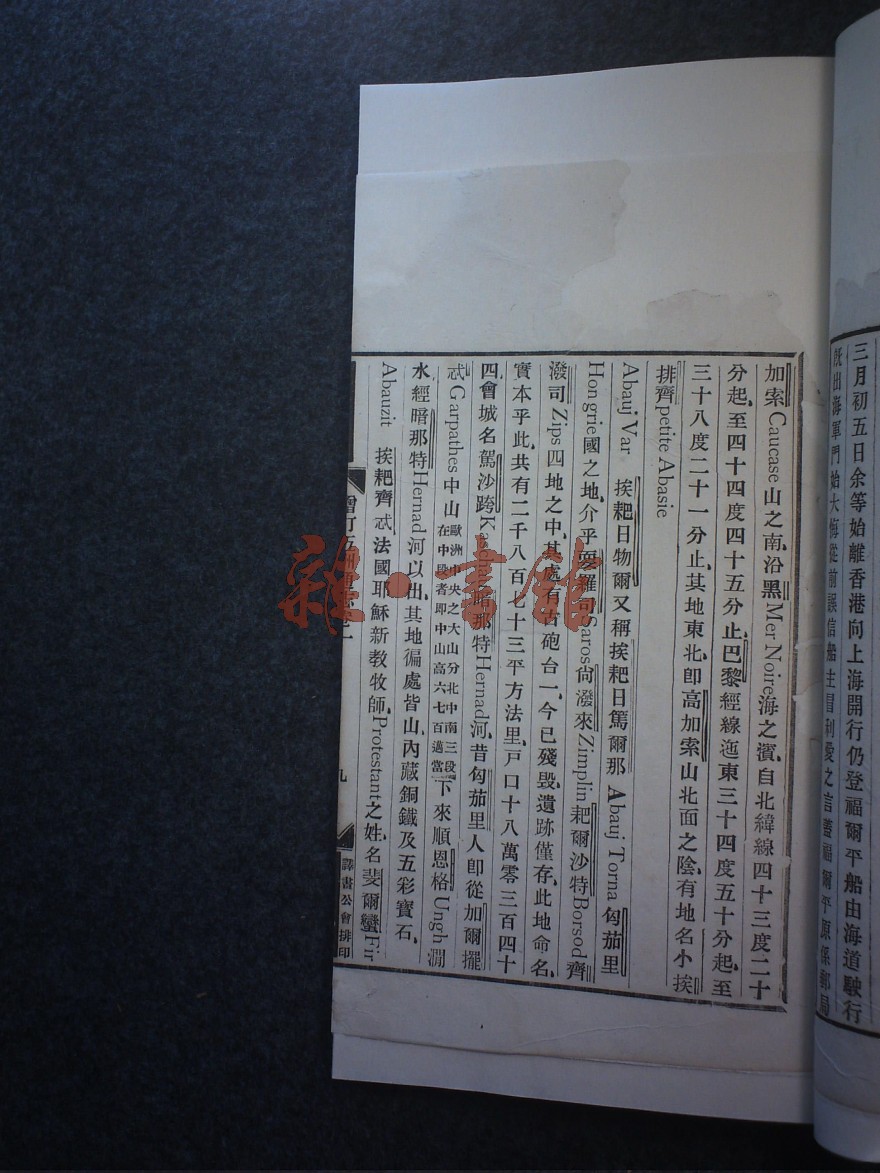 三月初五日余等始離香港向上海開行仍登福爾平船由海道駛行
旣出海軍門始大悔從前誤信船主冒利愛之言蓋福爾平原係郵局
加索Caucase山之南、沿黑Mer Noire海之濱、自北緯線四十三度二十
分起、至四十四度四十五分止、巴黎經線迤東三十四度五十分起、至
三十八度二十一分止、其地東北卽高加索山北面之陰、有地名小挨
排齊petite Abasie
Abauj Var 挨耙日物爾又稱挨耙日篤爾那 Abauj Torna 匈茄里
Hongrie國之地、介乎耍羅司Saros尙潑來Zimplin耙爾沙特Borsod齊
潑司Zips四地之中、其處有古砲台一、今已殘毀、遺跡僅存、此地命名、
實本乎此、共有二千八百七十三平方法里、戶口十八萬零三百四十
四、會城名駕沙、跨Kascha暗那特Hernad河、昔匈茄里人卽從加爾擺
忒Garpathes中山歐洲中央之大山分北中南三段在中段者卽中山高六七百邁當下來順恩格Ungh澗
水經暗那特Hernad河以出、其地徧處皆山、內藏銅鐵及五彩寶石、
Abauzit 挨耙齊忒法國耶穌新教牧師、Protestant之姓、名斐爾蠻Fir
九
譯書公會排印
雜·書館